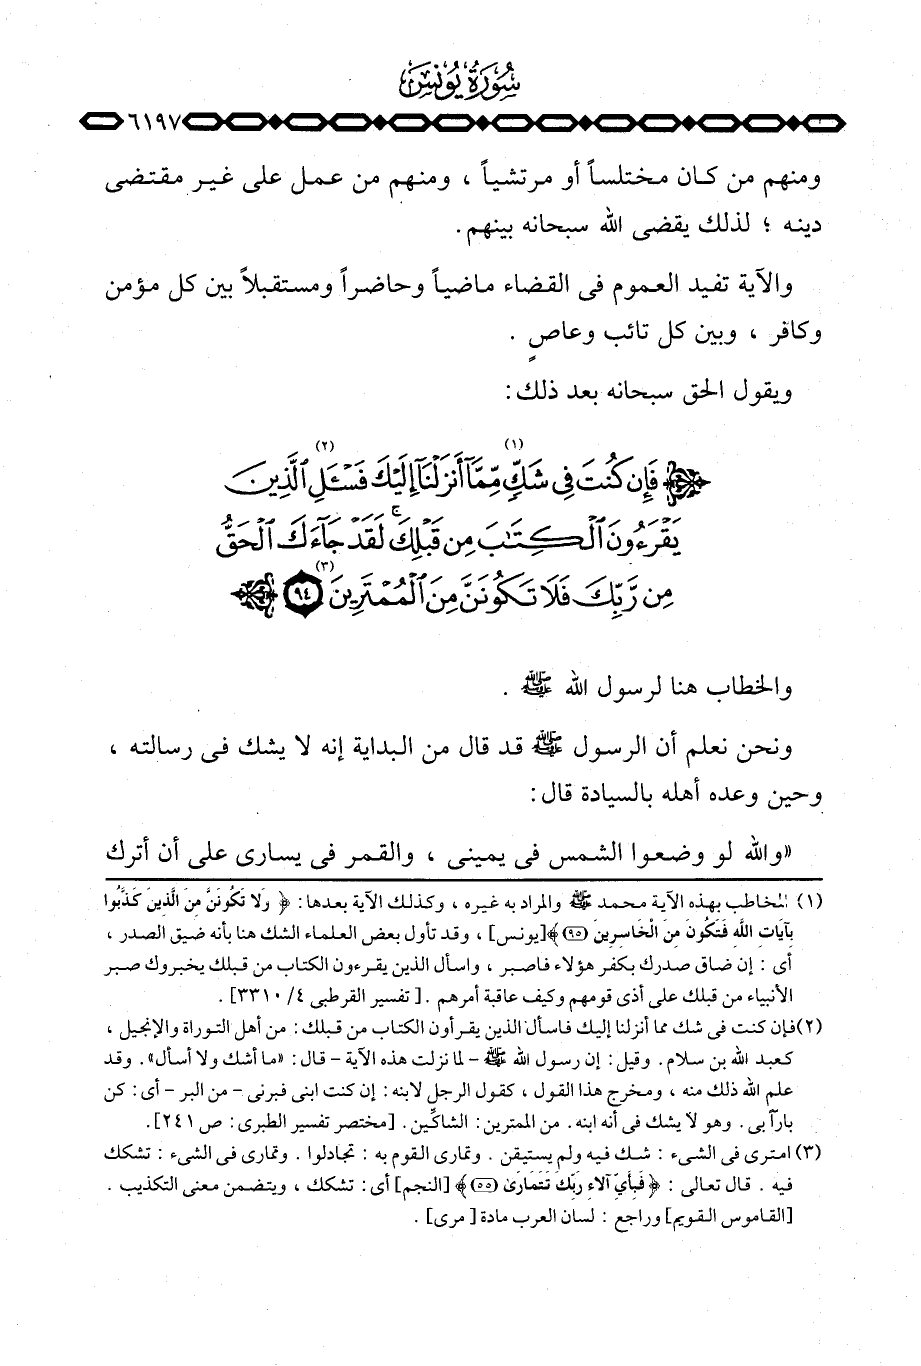 سُورَةُ يُونُسَ
٦١٩٧
ومنهم من كان مختلساً أو مرتشياً ، ومنهم من عمل على غير مقتضى
دينه ؛ لذلك يقضى الله سبحانه بينهم.
والآية تفيد العموم فى القضاء ماضياً وحاضراً ومستقبلاً بين كل مؤمن
وكافر ، وبين كل تائب وعاصٍ .
ويقول الحق سبحانه بعد ذلك:
فَإِن كُنتَ فِي شَكٍّ (١) مِّمَّآ أَنزَلْنَآ إِلَيْكَ فَسْـَٔلِ (٢) ٱلَّذِينَ
يَقْرَءُونَ ٱلْكِتَٰبَ مِن قَبْلِكَ ۚ لَقَدْ جَآءَكَ ٱلْحَقُّ
مِن رَّبِّكَ فَلَا تَكُونَنَّ مِنَ ٱلْمُمْتَرِينَ (٣) ٩٤
والخطاب هنا لرسول الله ﷺ .
ونحن نعلم أن الرسول ﷺ قد قال من البداية إنه لا يشك فى رسالته ،
وحين وعده أهله بالسيادة قال:
«والله لو وضعوا الشمس فى يمينى ، والقمر فى يسارى على أن أترك
(١) المخاطب بهذه الآية محمد ﷺ والمراد به غيره ، وكذلك الآية بعدها: ﴿ وَلا تَكُونَنَّ مِنَ الَّذِينَ كَذَّبُوا
بِآيَاتِ اللَّهِ فَتَكُونَ مِنَ الْخَاسِرِينَ (٩٥) ﴾[يونس] ، وقد تأول بعض العلماء الشك هنا بأنه ضيق الصدر ،
أى : إن ضاق صدرك بكفر هؤلاء فاصبر ، واسأل الذين يقرءون الكتاب من قبلك يخبروك صبر
الأنبياء من قبلك على أذى قومهم وكيف عاقبة أمرهم . [تفسير القرطبى ٤/ ٣٣١٠] .
(٢) فإن كنت فى شك مما أنزلنا إليك فاسأل الذين يقرأون الكتاب من قبلك: من أهل التوراة والإنجيل ،
كعبد الله بن سلام. وقيل: إن رسول الله ﷺ - لما نزلت هذه الآية - قال: «ما أشك ولا أسأل». وقد
علم الله ذلك منه ، ومخرج هذا القول ، كقول الرجل لابنه: إن كنت ابنى فبرنى - من البر - أى: كن
بارآ بى. وهو لا يشك فى أنه ابنه. من الممترين: الشاكِّين. [مختصر تفسير الطبرى: ص ٢٤١].
(٣) امترى فى الشىء : شك فيه ولم يستيقن . وتمارى القوم به : تجادلوا. وتمارى فى الشىء : تشكك
فيه . قال تعالى : ﴿ فَبِأَيِّ آلاءِ رَبِّكَ تَتَمَارَىٰ (٥٥) ﴾ [النجم] أى: تشكك ، ويتضمن معنى التكذيب .
[القاموس القويم] وراجع : لسان العرب مادة [ مرى] .